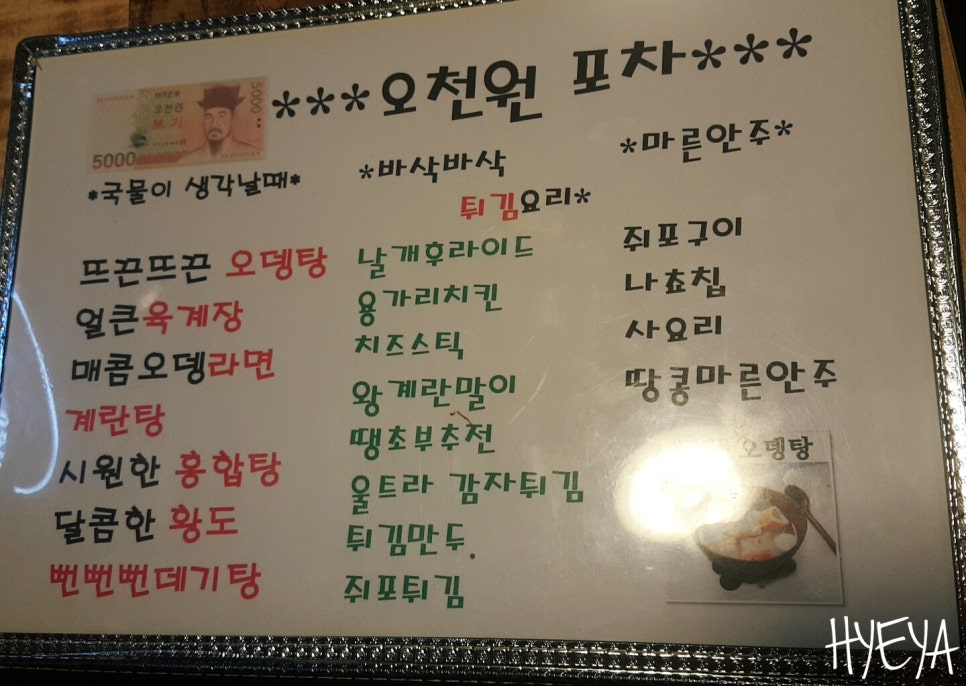 ***오천원 포차***
5000
5000
오천원
보기
*국물이 생각날때*
뜨끈뜨끈 오뎅탕
얼큰육계장
매콤오뎅라면
계란탕
시원한 홍합탕
달콤한 황도
뻔뻔뻔데기탕
*바삭바삭
튀김요리*
날개후라이드
용가리치킨
치즈스틱
왕계란말이
땡초부추전
울트라 감자튀김
튀김만두
쥐포튀김
*마른안주*
쥐포구이
나쵸칩
사요리
땅콩마른안주
오뎅탕
HYEYA